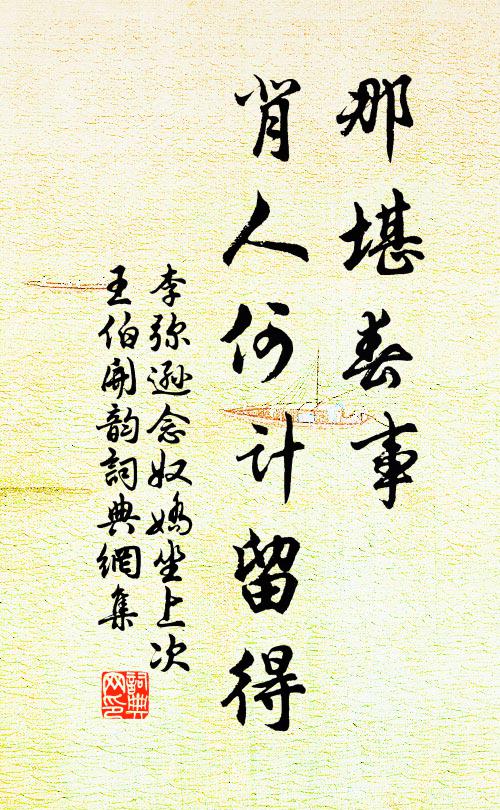 那堪春事
背人何计留得
李弥逊念奴娇坐上次
王伯開韵詞典網集
詞典
网印